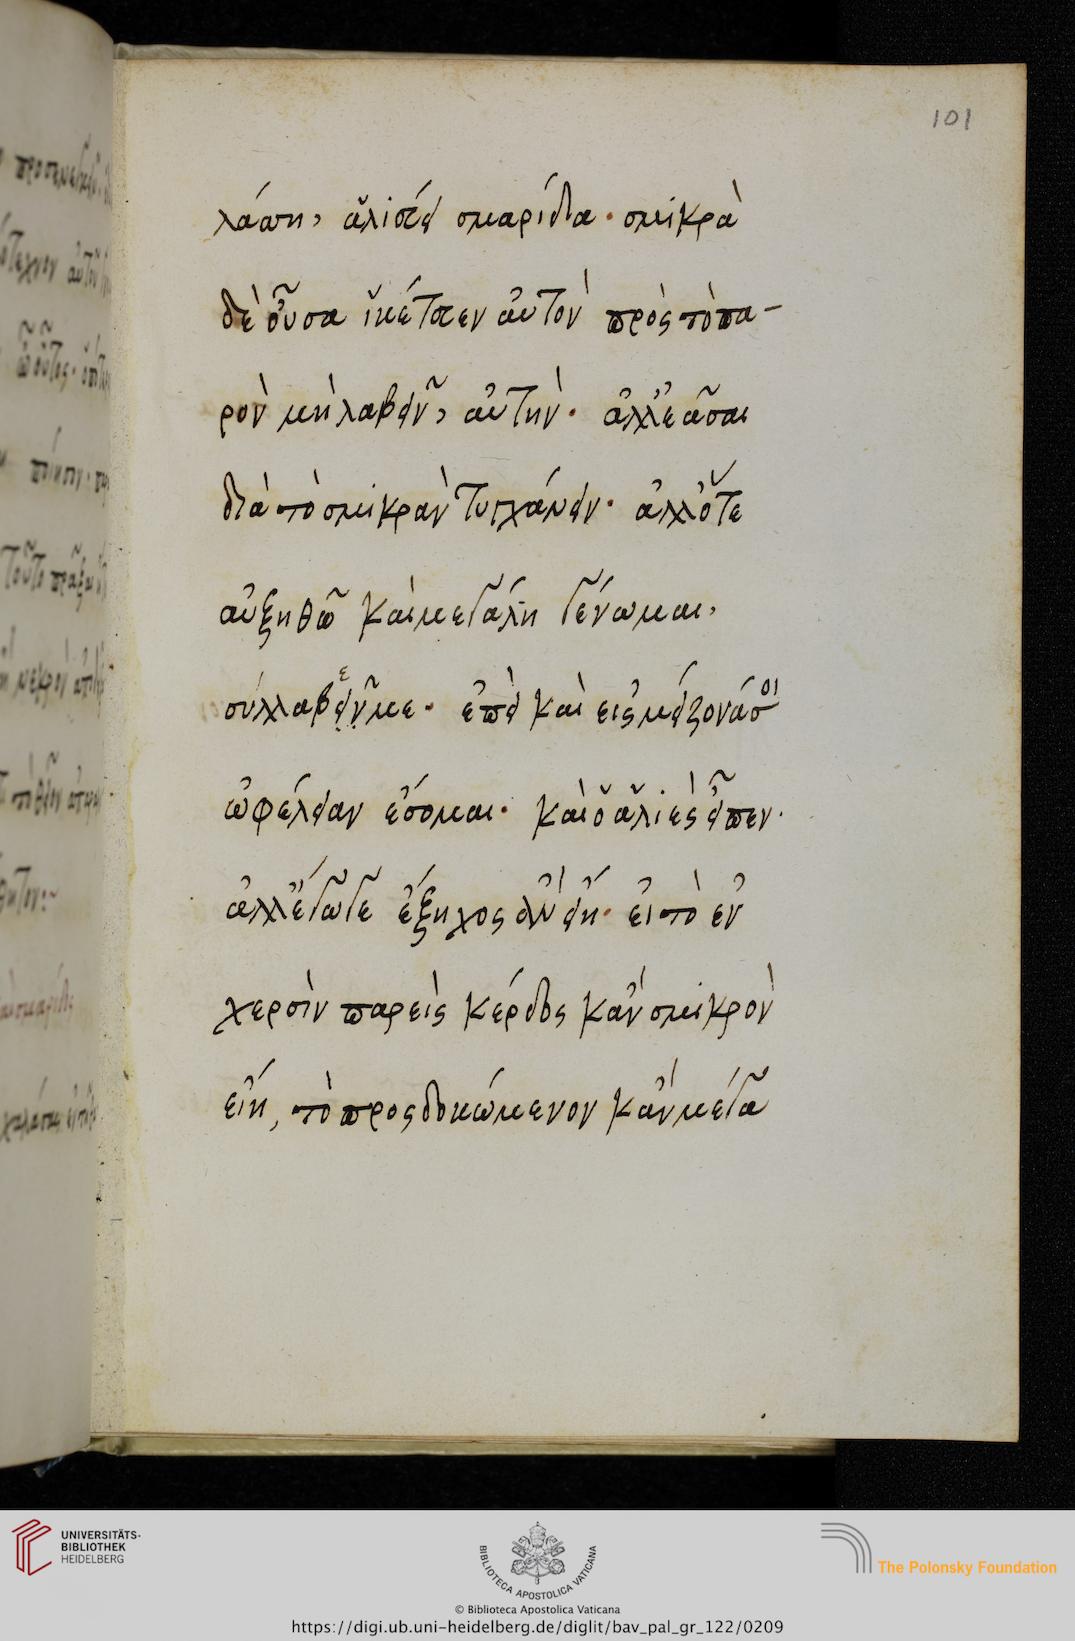 101
λάσση, ἁλιεῖ σμαρίδα. σμικρὰ
δὲ οὖσα ἱκέτευεν αὐτὸν πρὸς τὸ πα-
ρὸν μὴ λαβεῖν, αὐτὴν. ἀλλ' ἐᾶσαι
διὰ τὸ σμικρὰν τυγχάνειν. ἀλλ' ὅτε
αὐξηθῶ καὶ μεγάλη γένωμαι,
συλλαβεῖν με. ἐπεὶ καὶ εἰς μείζονά σοι
ὠφέλειαν ἔσομαι. καὶ ὁ ἁλιεὺς εἶπεν.
ἀλλ' ἔγωγε ἔξηχος ἂν εἴη. εἰ τὸ ἐν
χερσὶν παρεὶς κέρδος κἂν σμικρὸν
εἴη, τὸ προσδοκώμενον κἂν μέγα
UNIVERSITÄTS-
BIBLIOTHEK
HEIDELBERG
BIBLIOTECA APOSTOLICA VATICANA
The Polonsky Foundation
© Biblioteca Apostolica Vaticana
https://digi.ub.uni-heidelberg.de/diglit/bav_pal_gr_122/0209